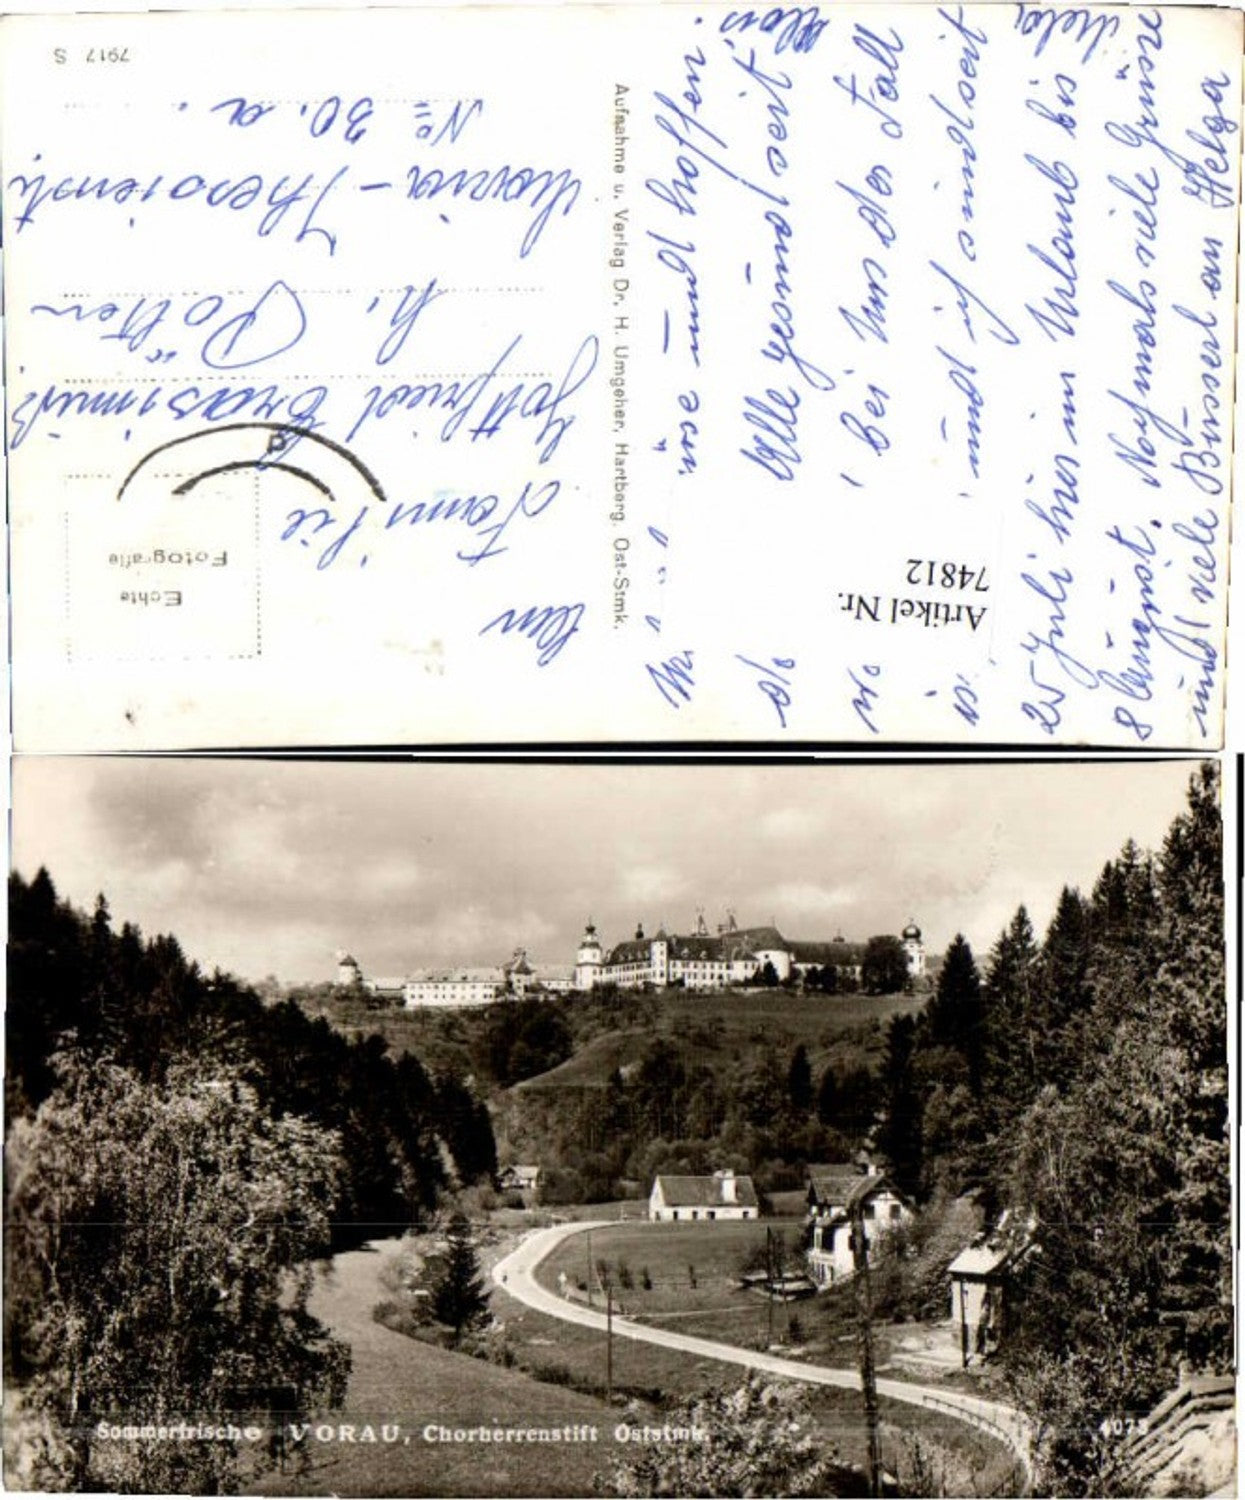 7917 S
Echte
Fotografie
P
An
Familie
Gottfried
St. Pölten
Maria-Theresienstr.
№ 30.a.
Aufnahme u. Verlag Dr. H. Umgeher, Hartberg, Ost-Stmk.
und hoffen.
Alle gesund seit
bei uns der Fall
und ich sind seit
25 Juli hier in Urlaub bis
8 August. Nochmals viele Grüsse
und viele Busserl an Helga
Artikel Nr.
74812
Sommerfrische VORAU, Chorherrenstift Oststmk.
4075